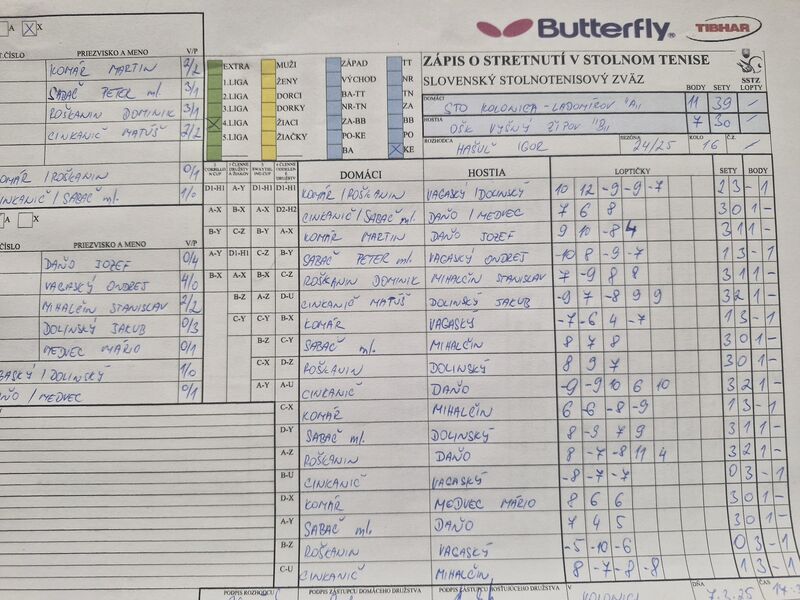 A X
Butterfly TIBHAR
ČÍSLO PRIEZVISKO A MENO V/P
KOMÁR MARTIN 2/2
SABAČ PETER ml. 3/1
ROŠKANIN DOMINIK 3/1
CINKANIČ MATÚŠ 2/2
KOMÁR / ROŠKANIN 0/1
CINKANIČ / SABAČ ml. 1/0
A X
ČÍSLO PRIEZVISKO A MENO V/P
DAŇO JOZEF 0/4
VAGASKÝ ONDREJ 4/0
MIHALČIN STANISLAV 2/2
DOLINSKÝ JAKUB 0/3
MEDVEC MÁRIO 0/1
VAGASKÝ / DOLINSKÝ 1/0
DAŇO / MEDVEC 0/1
EXTRA MUŽI ZÁPAD TT
1.LIGA ŽENY VÝCHOD NR
2.LIGA DORCI BA-TT TN
3.LIGA DORKY NR-TN ZA
4.LIGA ŽIACI ZA-BB BB
5.LIGA ŽIAČKY PO-KE PO
BA KE
ZÁPIS O STRETNUTÍ V STOLNOM TENISE
SLOVENSKÝ STOLNOTENISOVÝ ZVÄZ
BODY SETY SSTZ LOPTY
DOMÁCI STO KOLONICA - LADOMÍROV "A" 11 39
HOSTIA OŠK VYŠNÝ ŽIPOV "B" 7 30
ROZHODCA HAŠUĽ IGOR SEZÓNA 24/25 KOLO 16 Č.Z.
DOMÁCI HOSTIA LOPTIČKY SETY BODY
D1-H1 A-Y D1-H1 D1-H1 KOMÁR / ROŠKANIN VAGASKÝ / DOLINSKÝ 10 12 -9 -9 -7 2 3 - 1
A-X B-X A-X D2-H2 CINKANIČ / SABAČ ml. DAŇO / MEDVEC 7 6 8 3 0 1 -
B-Y C-Z B-Y A-X KOMÁR MARTIN DAŇO JOZEF 9 10 -8 4 3 1 1 -
A-Y D1-H1 C-Z B-Y SABAČ PETER ml. VAGASKÝ ONDREJ -10 8 -9 -7 1 3 - 1
B-X A-X B-X C-Z ROŠKANIN DOMINIK MIHALČIN STANISLAV 7 -9 8 8 3 1 1 -
B-Z A-Z D-U CINKANIČ MATÚŠ DOLINSKÝ JAKUB -9 7 -8 9 9 3 2 1 -
C-Y C-Y B-X KOMÁR VAGASKÝ -7 -6 4 -7 1 3 - 1
B-Z C-Y SABAČ ml. MIHALČIN 8 7 8 3 0 1 -
C-X D-Z ROŠKANIN DOLINSKÝ 8 9 7 3 0 1 -
A-Y A-U CINKANIČ DAŇO -9 -9 10 6 10 3 2 1 -
C-X KOMÁR MIHALČIN 6 -6 -8 -9 1 3 - 1
D-Y SABAČ ml. DOLINSKÝ 8 -9 7 9 3 1 1 -
A-Z ROŠKANIN DAŇO 7 -7 -8 11 4 3 2 1 -
B-U CINKANIČ VAGASKÝ -8 -7 -7 0 3 - 1
D-X KOMÁR MEDVEC MÁRIO 8 6 6 3 0 1 -
A-Y SABAČ ml. DAŇO 7 4 5 3 0 1 -
B-Z ROŠKANIN VAGASKÝ -5 -10 -6 0 3 - 1
C-U CINKANIČ MIHALČIN 8 -7 -8 -8 1 3 - 1
PODPIS ROZHODCU PODPIS ZÁSTUPCU DOMÁCEHO DRUŽSTVA PODPIS ZÁSTUPCU HOSŤUJÚCEHO DRUŽSTVA V KOLONICI DŇA 7.2.25 ČAS